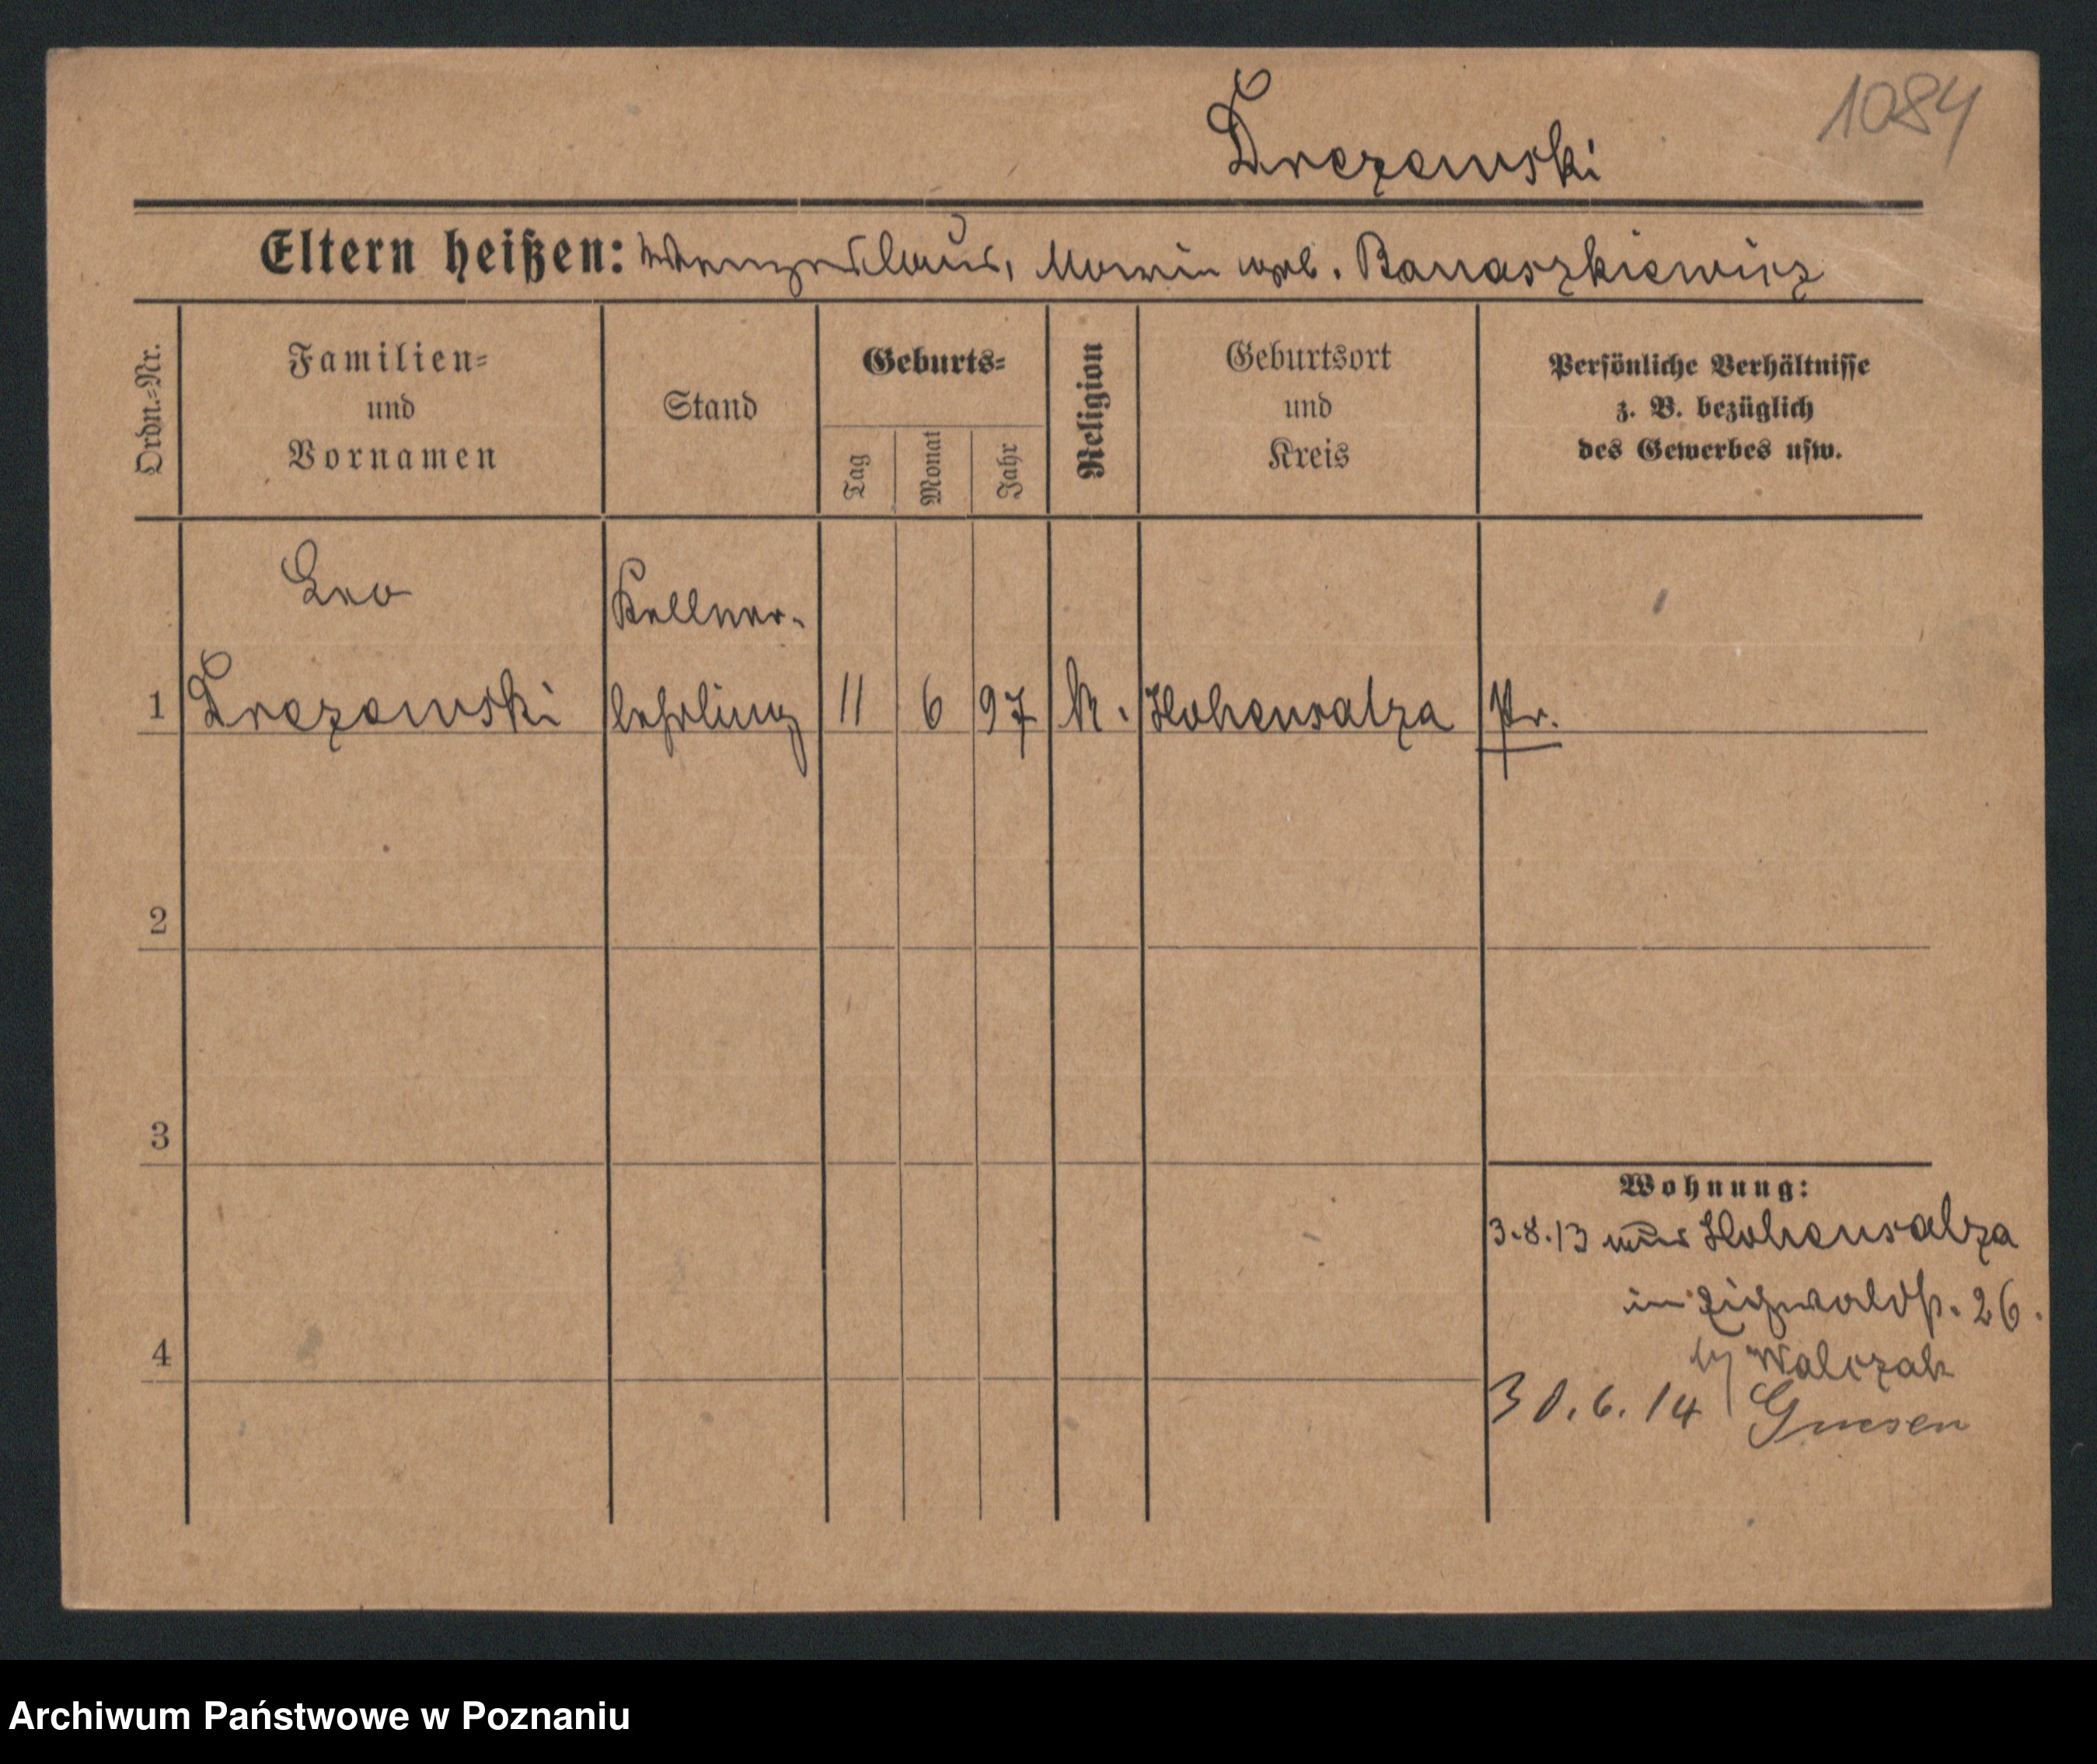 1084
Drezewski
Eltern heißen: Wenzeslaus, Maria geb. Banaszkiewicz
Ordn.-Nr.
Familien-
und
Vornamen
Stand
Geburts-
Tag
Monat
Jahr
Religion
Geburtsort
und
Kreis
Persönliche Verhältnisse
z. B. bezüglich
des Gewerbes usw.
Leo
Kellner-
1 Drezewski lehrling 11 6 97 k. Hohensalza Pr.
2
3
4
Wohnung:
3.8.13 aus Hohensalza
in 26.
Walczak
30.6.14 Gnesen
Archiwum Państwowe w Poznaniu